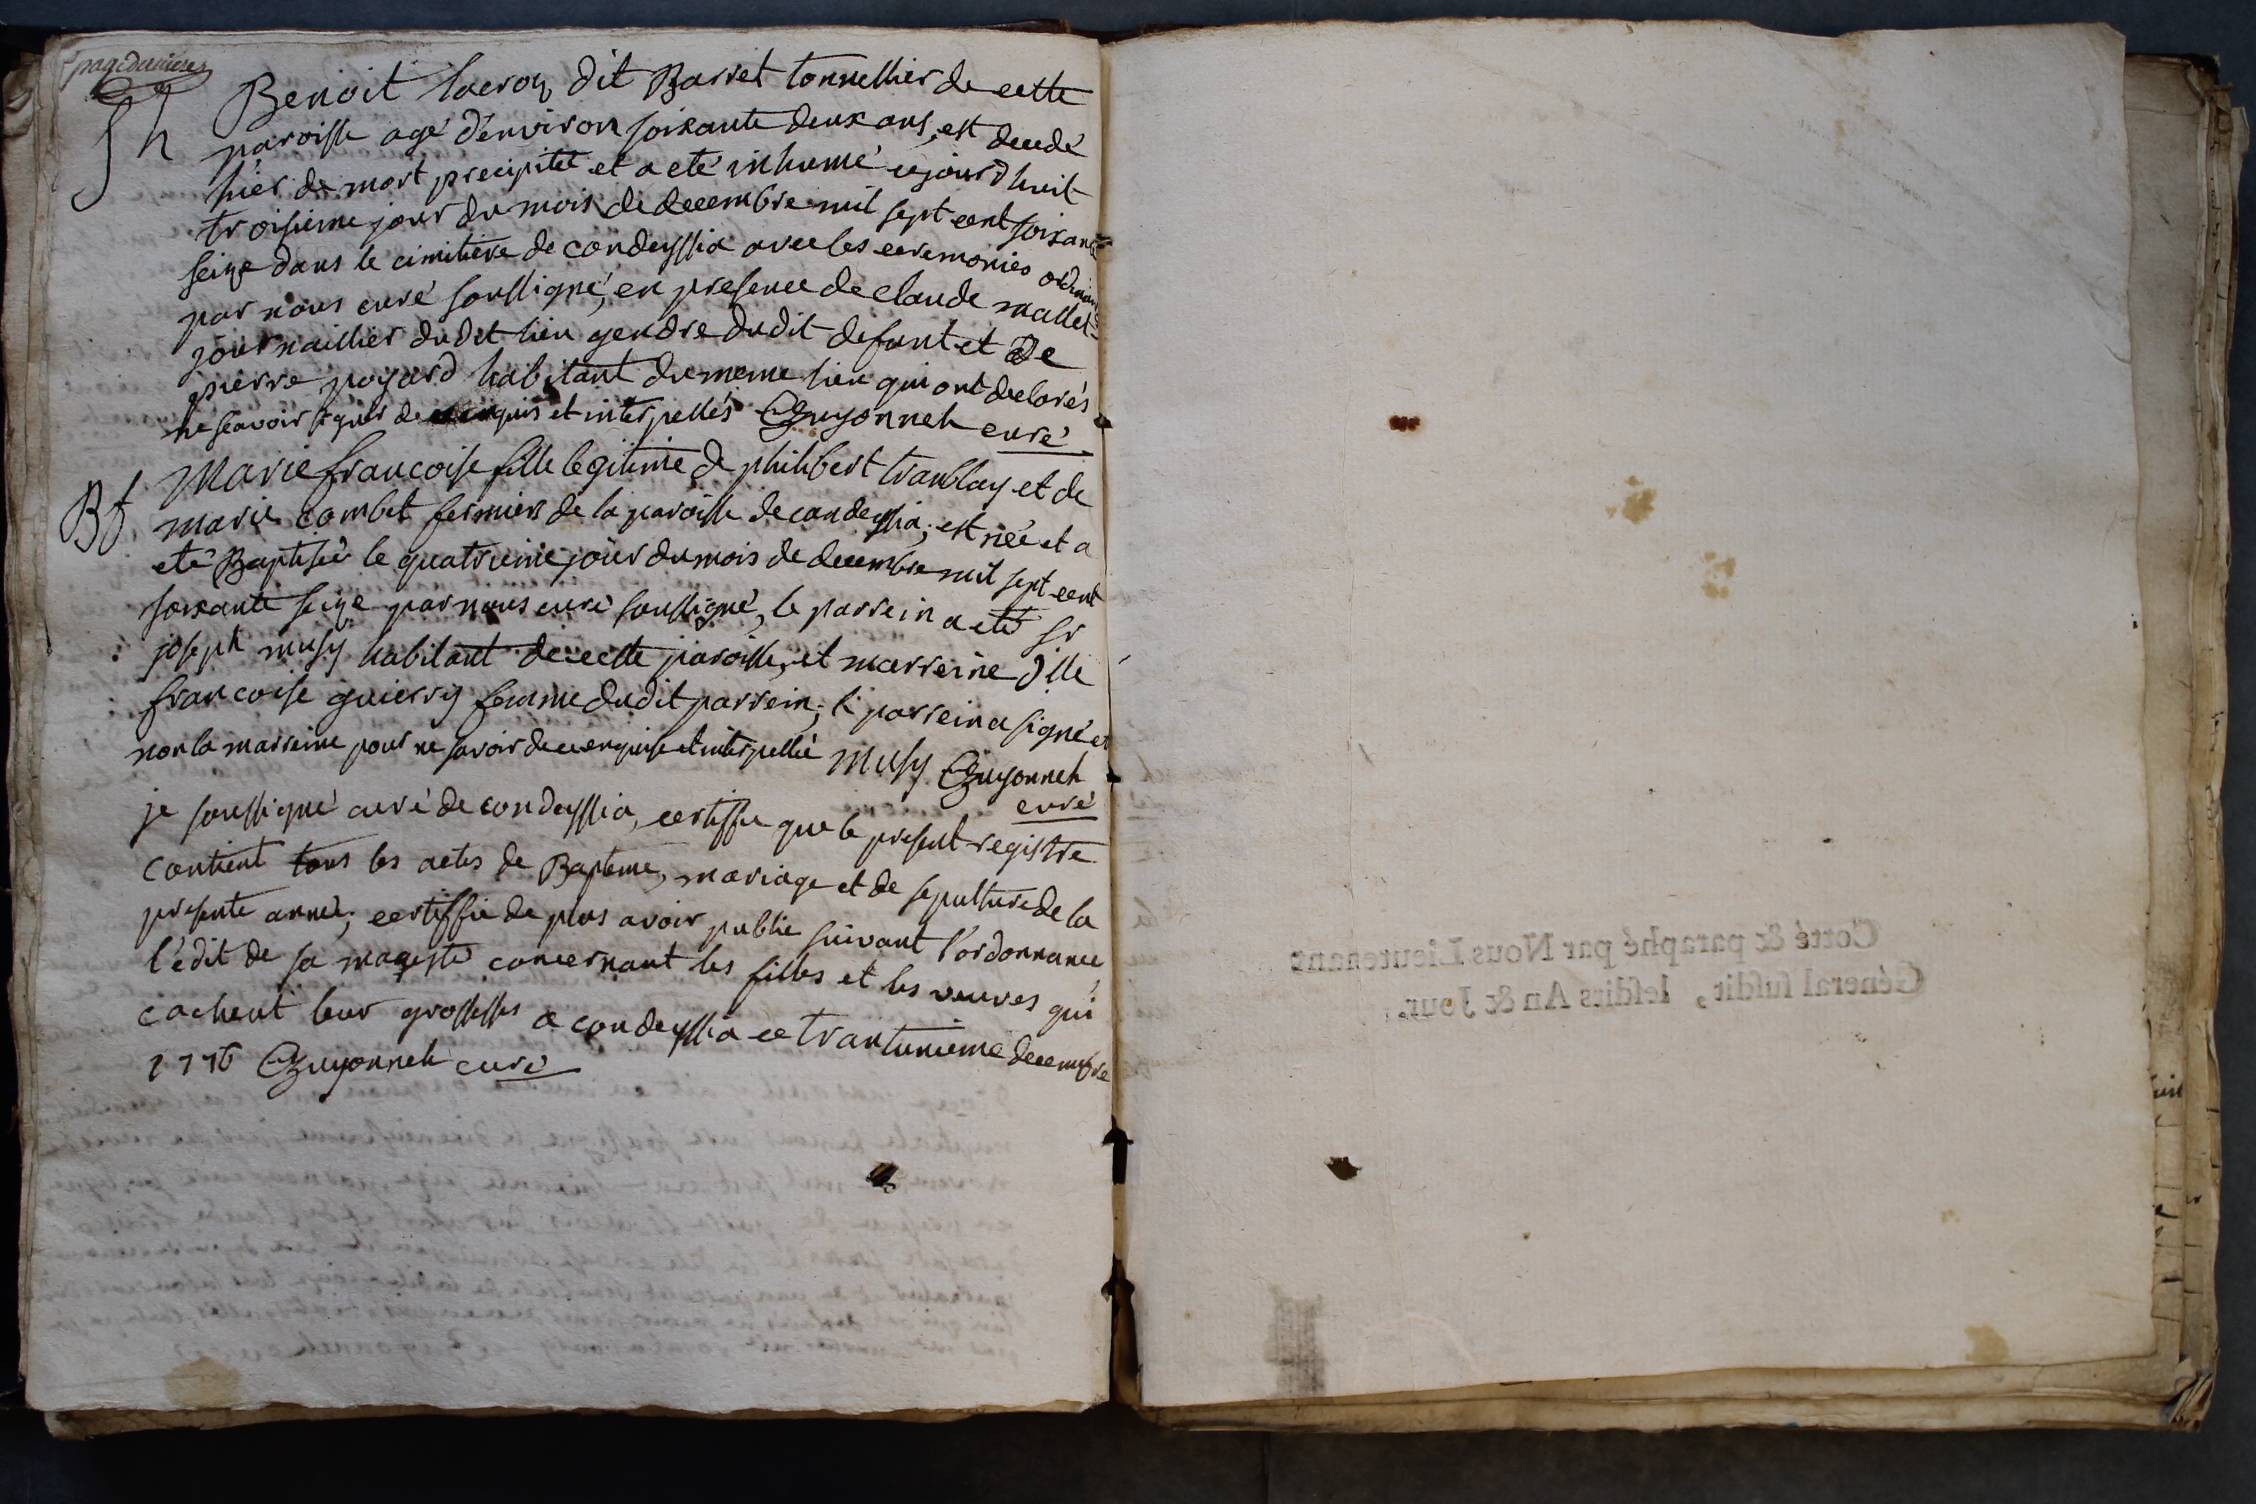 page derniere
Sh
Benoit lacroy dit Barret tonnellier de cette
paroisse agé d'environ soixante deux ans, est decedé
hier de mort precipitée et a eté inhumé cejourdhuit
troisieme jour du mois de decembre mil sept cent soixante
seize dans le cimitiere de condeyssia avec les ceremonies ordinaires
par nous curé soussigné, en presence de claude mallet
journaillier dudit lieu gendre dudit defunt et de
pierre poyard habitant du meme lieu qui ont declarés
ne scavoir signer de ce enquis et interpellés Guyonneh curé
Bt
Marie francoise fille legitime de philibert tranblay et de
marie combet fermiers de la paroisse de condeyssia; est née et a
eté Baptisée le quatrieme jour du mois de decembre mil sept cent
soixante seize par nous curé soussigné, le parrein a eté Sr
joseph musy habitant de cette paroisse, et marreine Dlle
francoise guierry femme dudit parrein; le parrein a signé et
non la marreine pour ne savoir de ce enquise et interpellée Musy Guyonneh
curé
je soussigné curé de condeyssia, certiffie que le present registre
contient tous les actes de Bapteme, mariage et de sepulture de la
presente année; certiffie de plus avoir publié suivant l'ordonnance
l'édit de sa magesté concernant les filles et les veuves qui
cachent leur grossesses a condeyssia ce trantunieme decembre
1776 Guyonneh curé
Cotté & paraphé par Nous Lieutenant
Général susdit, lesdits An & Jour.